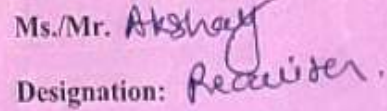 Ms./Mr. Akshay
Designation: Recruiter.